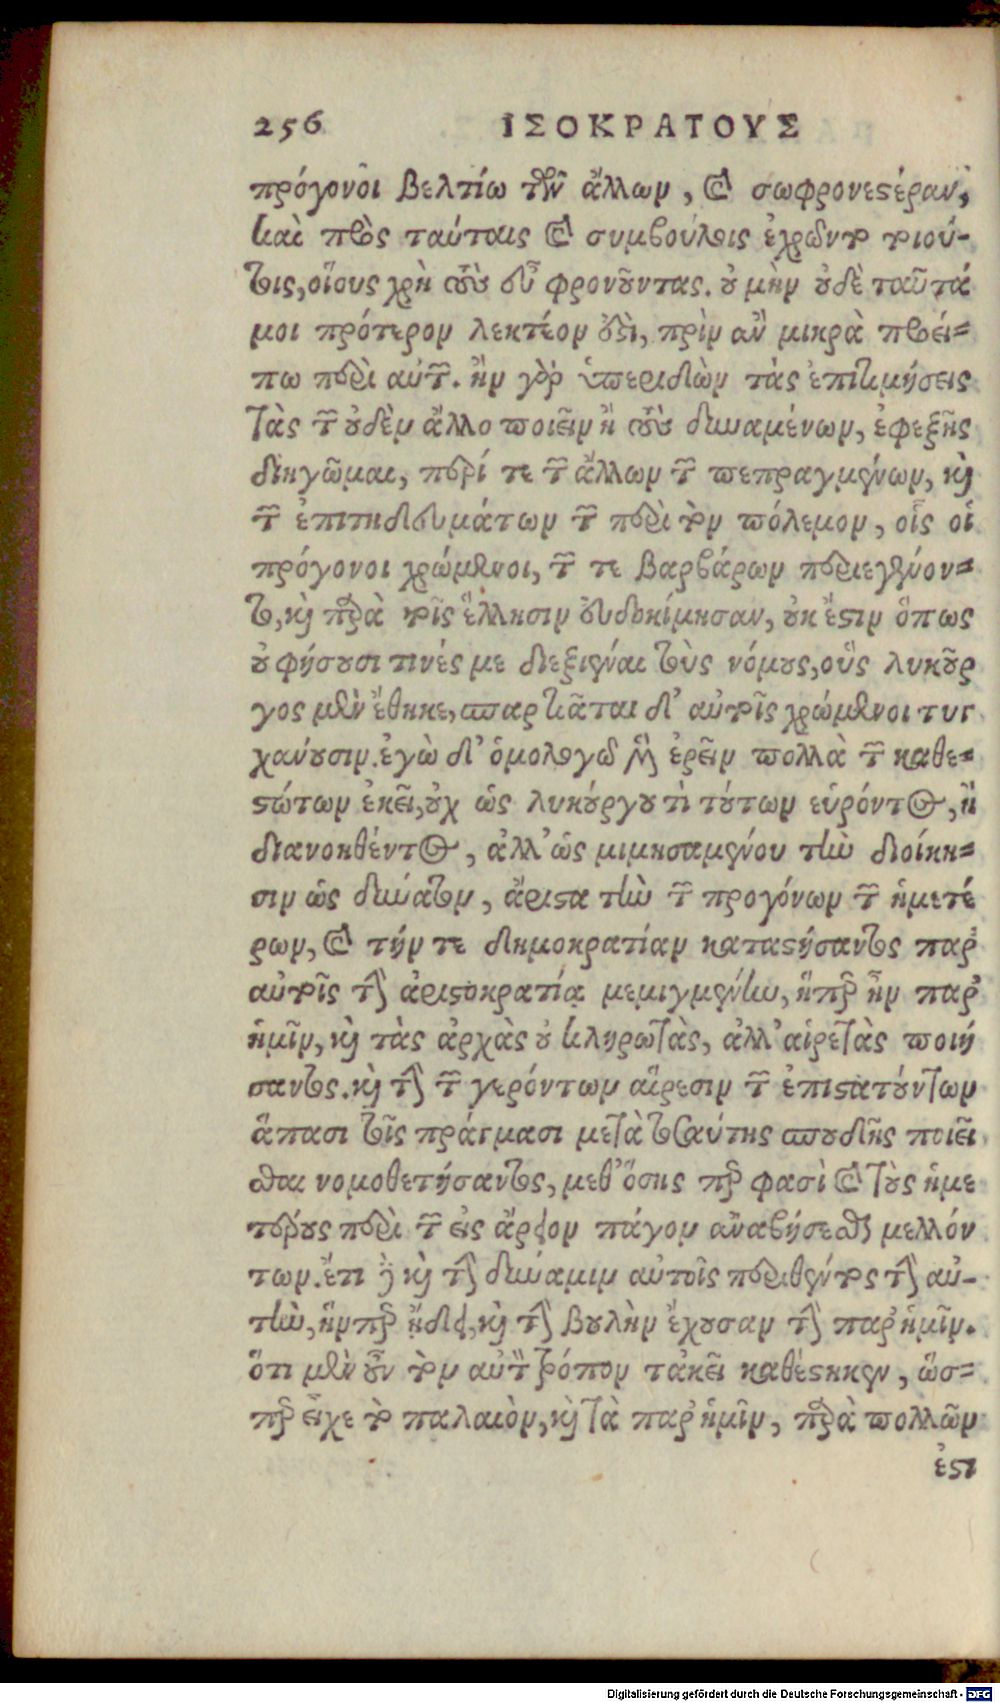 256 ΙΣΟΚΡΑΤΟΥΣ
πρόγονοι βελτίω τῶν ἄλλων, καὶ σωφρονεστέραν,
καὶ πρὸς ταύταις καὶ συμβούλοις ἐχρῶντο τοιού-
τοις, οἵους χρὴ τοὺς εὖ φρονοῦντας. οὐ μὴν οὐδὲ ταῦτά
μοι πρότερον λεκτέον ἐστὶ, πρὶν ἂν μικρὰ προεί-
πω περὶ αὐτῶν. ἢν γὰρ ὑπεριδὼν τὰς ἐπιτιμήσεις
τὰς τῶν οὐδὲν ἄλλο ποιεῖν ἢ τοῦτο δυναμένων, ἐφεξῆς
διηγῶμαι, περί τε τῶν ἄλλων τῶν πεπραγμένων, καὶ
τῶν ἐπιτηδευμάτων τῶν περὶ τὸν πόλεμον, οἷς οἱ
πρόγονοι χρώμενοι, τῶν τε βαρβάρων περιεγένον-
το, καὶ παρὰ τοῖς ἕλλησιν εὐδοκίμησαν, οὐκ ἔστιν ὅπως
οὐ φήσουσι τινές με διεξιέναι τοὺς νόμους, οὓς λυκοῦρ
γος μὲν ἔθηκε, σπαρτιᾶται δ' αὐτοῖς χρώμενοι τυγ
χάνουσιν. ἐγὼ δ' ὁμολογῶ μὲν ἐρεῖν πολλὰ τῶν καθε-
στώτων ἐκεῖ, οὐχ ὡς λυκούργου τὶ τούτων εὑρόντος, ἢ
διανοηθέντος, ἀλλ' ὡς μιμησαμένου τὴν διοίκη-
σιν ὡς δυνατὸν, ἄριστα τὴν τῶν προγόνων τῶν ἡμετέ
ρων, καὶ τήν τε δημοκρατίαν καταστήσαντος παρ'
αὐτοῖς τὴν ἀριστοκρατίᾳ μεμιγμένην, ἥπερ ἦν παρ'
ἡμῖν, καὶ τὰς ἀρχὰς οὐ κληρωτὰς, ἀλλ' αἱρετὰς ποιή
σαντος. καὶ τὴν τῶν γερόντων αἵρεσιν τῶν ἐπιστατούντων
ἅπασι τοῖς πράγμασι μετὰ τοσαύτης σπουδῆς ποιεῖ
σθαι νομοθετήσαντος, μεθ' ὅσης περ φασὶ καὶ τοὺς ἡμε
τέρους περὶ τῶν εἰς ἄρειον πάγον ἀναβήσεσθαι μελλόν
των. ἔτι δὲ καὶ τὴν δύναμιν αὐτοῖς περιθέντος τὴν αὐ-
τὴν, ἥνπερ ᾔδει, καὶ τὴν βουλὴν ἔχουσαν τὴν παρ' ἡμῖν.
ὅτι μὲν οὖν τὸν αὐτὸν τρόπον τἀκεῖ καθέστηκεν, ὥσ-
περ εἶχε τὸ παλαιὸν, καὶ τὰ παρ' ἡμῖν, παρὰ πολλῶν
ἐστι
Digitalisierung gefördert durch die Deutsche Forschungsgemeinschaft - DFG